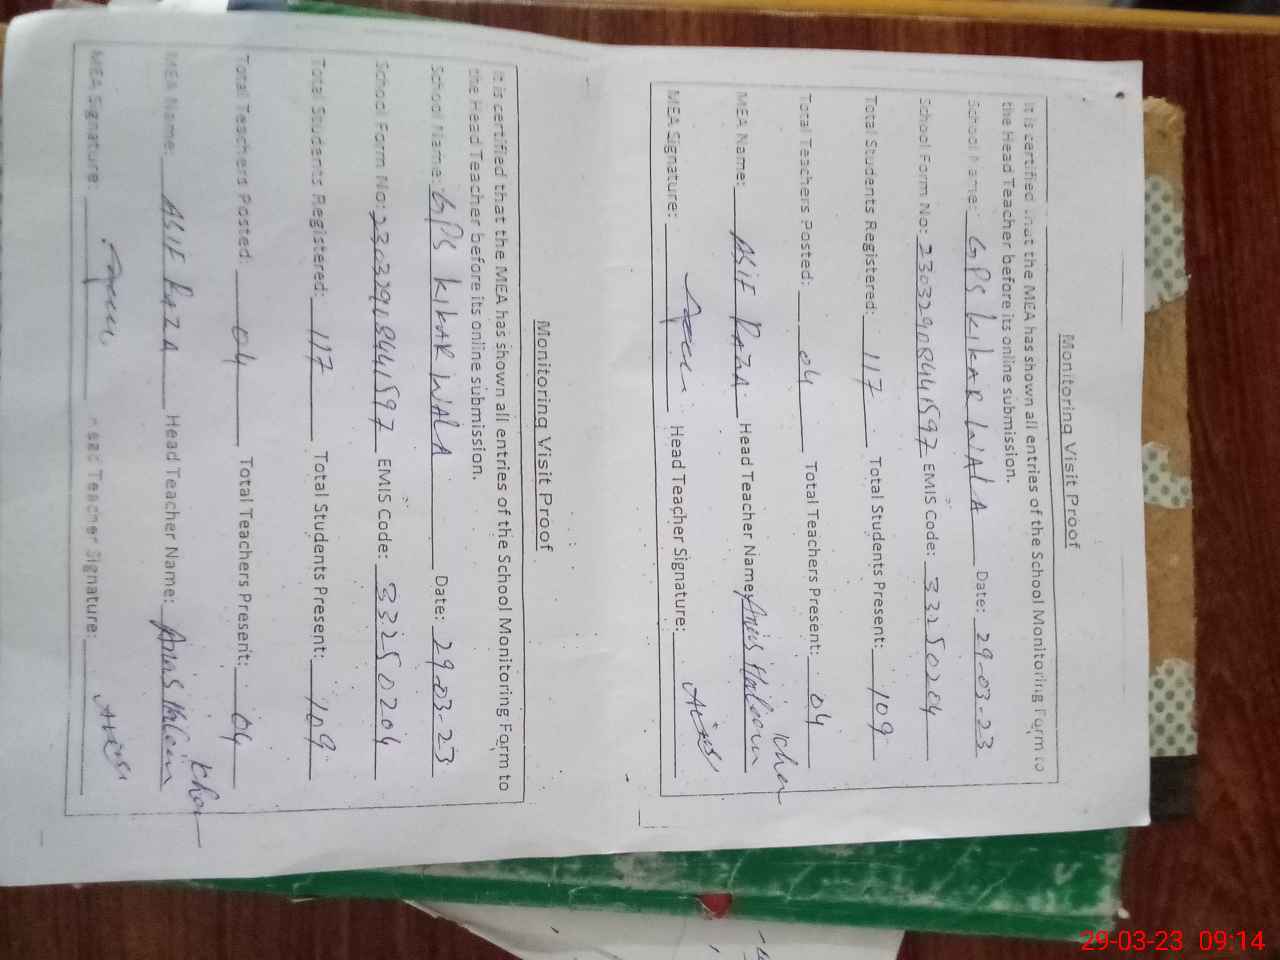 Monitoring Visit Proof
It is certified that the MEA has shown all entries of the School Monitoring Form to
the Head Teacher before its online submission.
School Name: GPS KIKAR WALA Date: 29-03-23
School Form No: EMIS Code: 33250204
Total Students Registered: 117 Total Students Present: 109
Total Teachers Posted: 04 Total Teachers Present: 04
MEA Name: ASIF RAZA Head Teacher Name:
MEA Signature: Head Teacher Signature:
Monitoring Visit Proof
It is certified that the MEA has shown all entries of the School Monitoring Form to
the Head Teacher before its online submission.
School Name: GPS KIKAR WALA Date: 29-03-23
School Form No: EMIS Code: 33250204
Total Students Registered: 117 Total Students Present: 109
Total Teachers Posted: 04 Total Teachers Present: 04
MEA Name: ASIF RAZA Head Teacher Name:
MEA Signature: Head Teacher Signature:
29-03-23 09:14